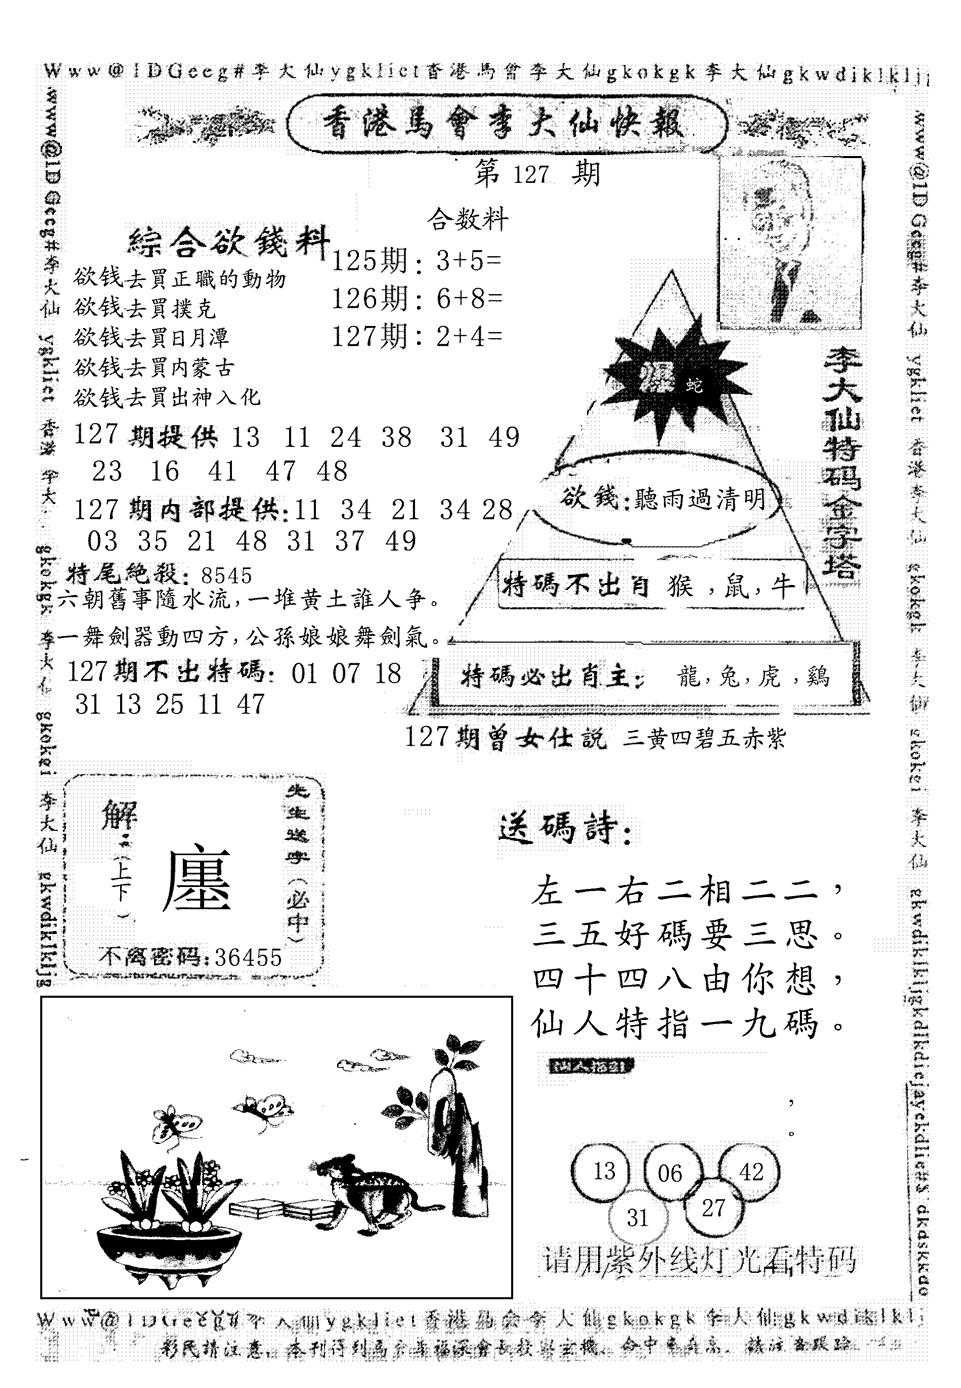 Www@1DGeeg#李大仙ygkliet香港馬會李大仙gkokgk李大仙gkwdiklkljg
香港馬會李大仙快報
第 127 期
合数料
綜合欲錢料
125期: 3+5=
126期: 6+8=
127期: 2+4=
欲钱去買正職的動物
欲钱去買撲克
欲钱去買日月潭
欲钱去買内蒙古
欲钱去買出神入化
127 期提供 13 11 24 38 31 49
23 16 41 47 48
127 期内部提供:11 34 21 34 28
03 35 21 48 31 37 49
特尾絶殺: 8545
六朝舊事隨水流,一堆黄土誰人争。
一舞劍器動四方,公孫娘娘舞劍氣。
127期不出特碼: 01 07 18
31 13 25 11 47
爆 蛇
欲錢:聽雨過清明
特碼不出肖 猴,鼠,牛
特碼必出肖主: 龍,兔,虎,鷄
李大仙特码金字塔
127期曾女仕説 三黄四碧五赤紫
解
(上下)
廛
先生送字(必中)
不离密码:36455
送碼詩:
左一右二相二二,
三五好碼要三思。
四十四八由你想,
仙人特指一九碼。
仙人指引
,
。
13 06 42
31 27
请用紫外线灯光看特码
www@1DGeeg#李大仙 ygkliet 香港 李大 gkokgk 李大仙 gkokei 李大仙 gkwdiklkljg
www@1DGeeg#李大仙 ygkliet 香港李大仙 gkokgk 李大仙 gkokei 李大仙 gkwdiklkljgkdlkdiejayekdlie#$ dkdskkdo
Www@1DGeeg 李大仙ygkliet香港馬會李大仙gkokgk李大仙gkwdi
彩民請注意,本刊得到馬會